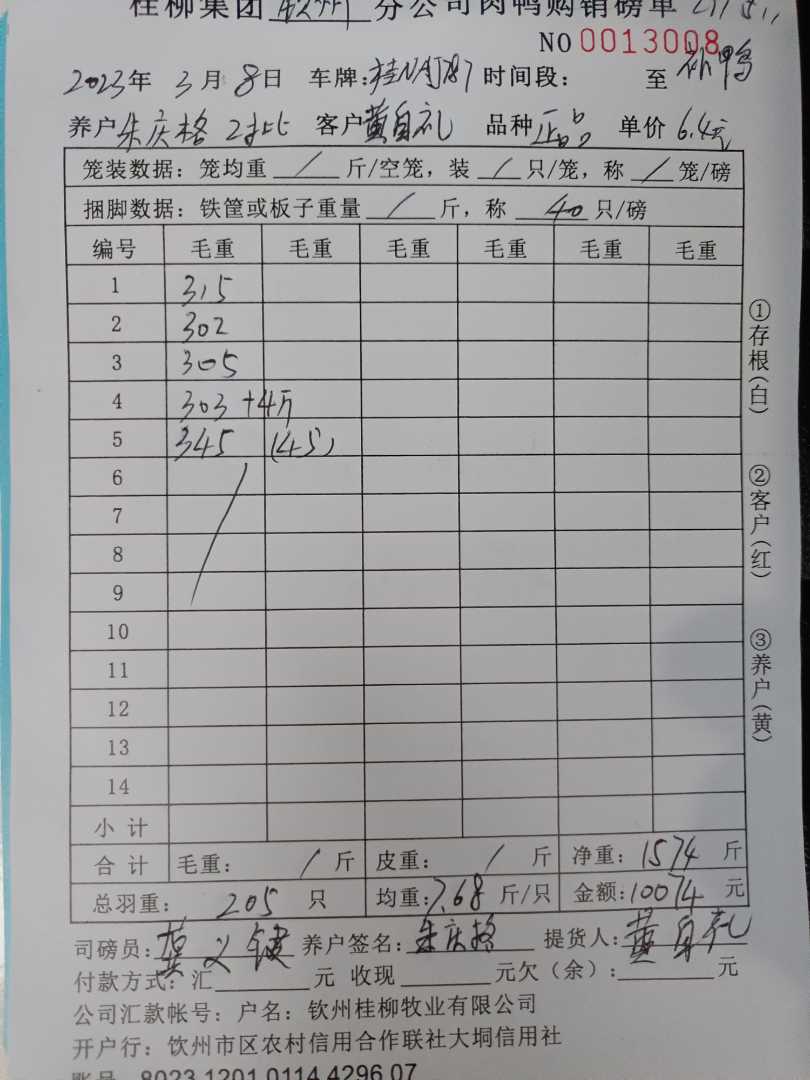 桂柳集团 钦州 分公司肉鸭购销磅单
NO 0013008
2023年 3月 8日 车牌: 时间段: 至 补鸭
养户 朱庆格 2批 客户 黄自礼 品种 正品 单价 6.4元
笼装数据: 笼均重 / 斤/空笼, 装 / 只/笼, 称 / 笼/磅
捆脚数据: 铁筐或板子重量 / 斤, 称 40 只/磅
编号 毛重 毛重 毛重 毛重 毛重 毛重
1 315
2 302
3 305
4 303 +4斤
5 345 (45)
6
7
8
9
10
11
12
13
14
小计
合计 毛重: / 斤 皮重: / 斤 净重: 1574 斤
总羽重: 205 只 均重: 7.68 斤/只 金额: 10074 元
司磅员: 养户签名: 朱庆格 提货人: 黄自礼
付款方式: 汇 元 收现 元欠(余): 元
公司汇款帐号: 户名: 钦州桂柳牧业有限公司
开户行: 钦州市区农村信用合作联社大垌信用社
账号 8023 1201 0114 4296 07
①存根(白)
②客户(红)
③养户(黄)